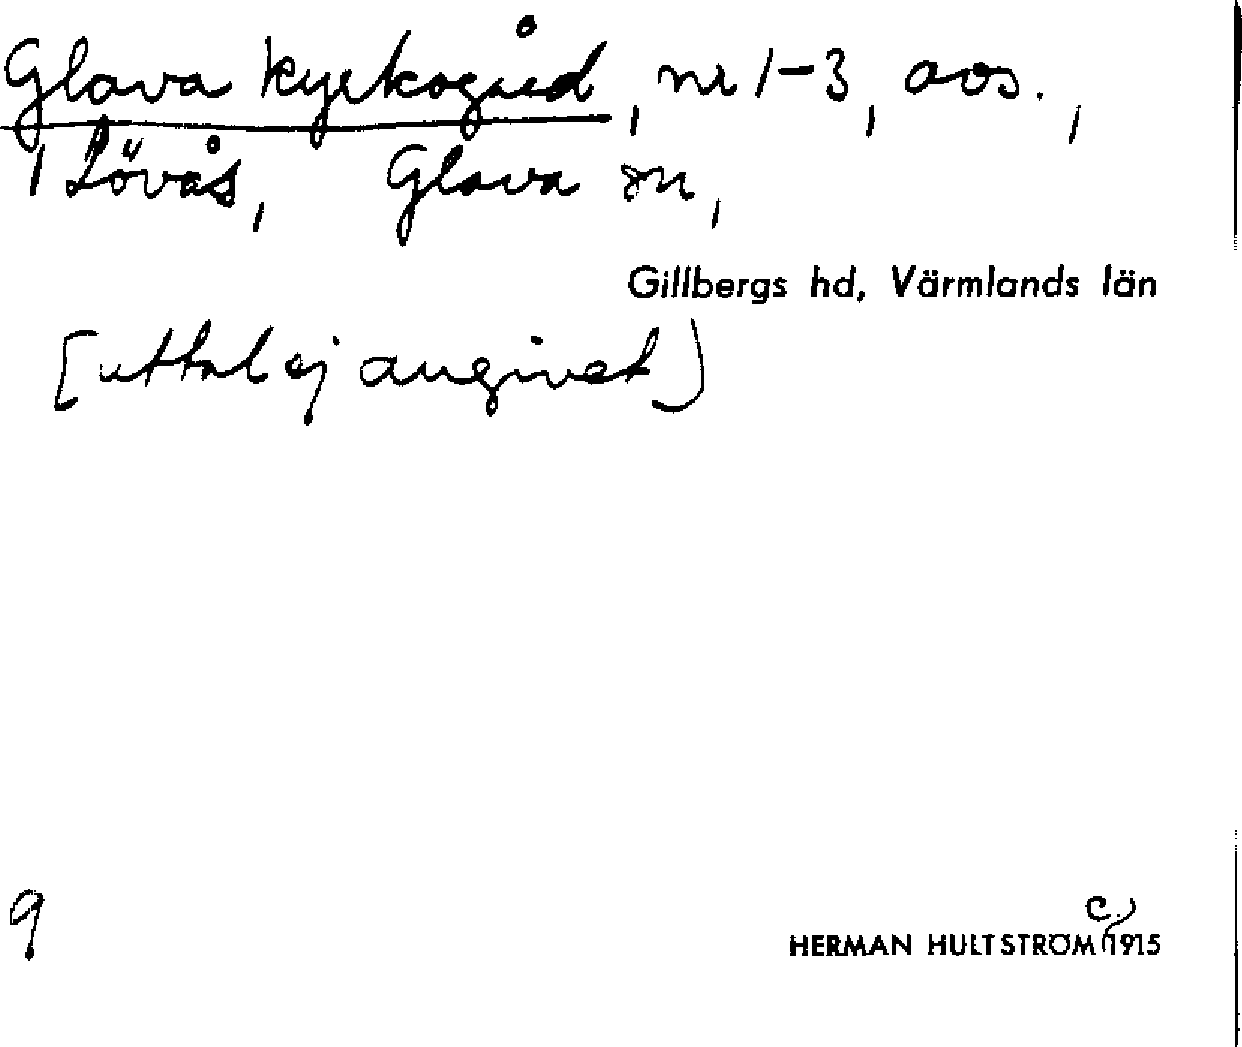 Glava kyrkogård, nr 1-3, aos.,
i Lövås, Glava sn,
Gillbergs hd, Värmlands län
[uttal ej angivet]
9
HERMAN HULTSTRÖM c. 1915